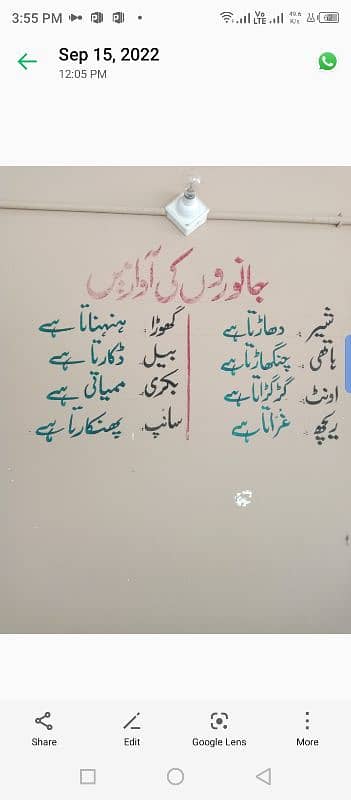 3:55 PM
Vo LTE
49.6 K/s
Sep 15, 2022
12:05 PM
جانوروں کی آوازیں
شیر دھاڑتا ہے
ہاتھی چنگھاڑتا ہے
اونٹ گڑگڑاتا ہے
ریچھ غراتا ہے
گھوڑا ہنہناتا ہے
بیل ڈکارتا ہے
بکری ممیاتی ہے
سانپ پھنکارتا ہے
Share
Edit
Google Lens
More